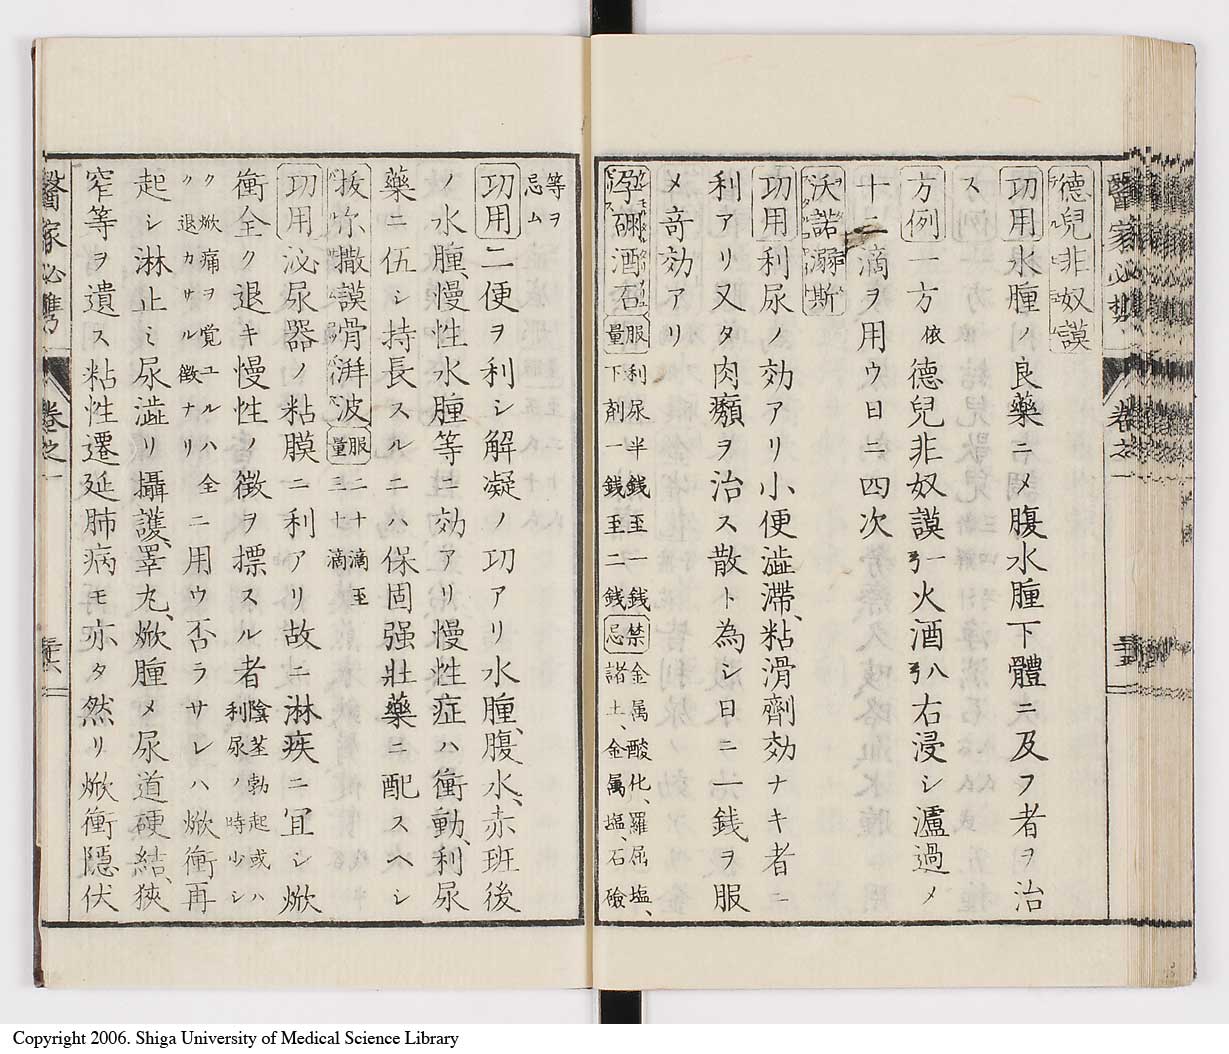 德兒非奴謨
功用水腫ノ良藥ニメ腹水腫下體ニ及フ者ヲ治
ス
方例一方依德兒非奴謨一弓火酒八弓右浸シ瀘過メ
十二滴ヲ用ウ日ニ四次
沃諾溺斯
功用利尿ノ効アリ小便澁滯、粘滑劑効ナキ者ニ
利アリ又タ肉癩ヲ治ス散ト為シ日ニ一銭ヲ服
メ奇効アリ
孕礵酒石服量利尿半銭至一銭下剤一銭至二銭禁忌金属酸化、羅屈塩、諸土、金属塩、石礆
等ヲ忌ム
功用二便ヲ利シ解凝ノ功アリ水腫、腹水、赤班後
ノ水腫、慢性水腫等ニ効アリ、慢性症ハ衝動、利尿
藥ニ伍シ持長スルニハ保固强壯藥ニ配スヘシ
拔尓撒謨骨湃波服量二十滴至三十滴
功用泌尿器ノ粘膜ニ利アリ故ニ淋疾ニ宜シ焮
衝全ク退キ慢性ノ徴ヲ標スル者陰茎勃起或ハ利尿ノ時少シ
ク焮痛ヲ覚ユルハ全ク退カサル徴ナリニ用ウ否ラサレハ焮衝再
起シ淋止ミ尿澁リ攝護、睪丸、焮腫メ尿道硬結、狹
窄等ヲ遺ス粘性遷延肺病モ亦タ然リ焮衝隱伏
醫家必携
卷之一
Copyright 2006. Shiga University of Medical Science Library